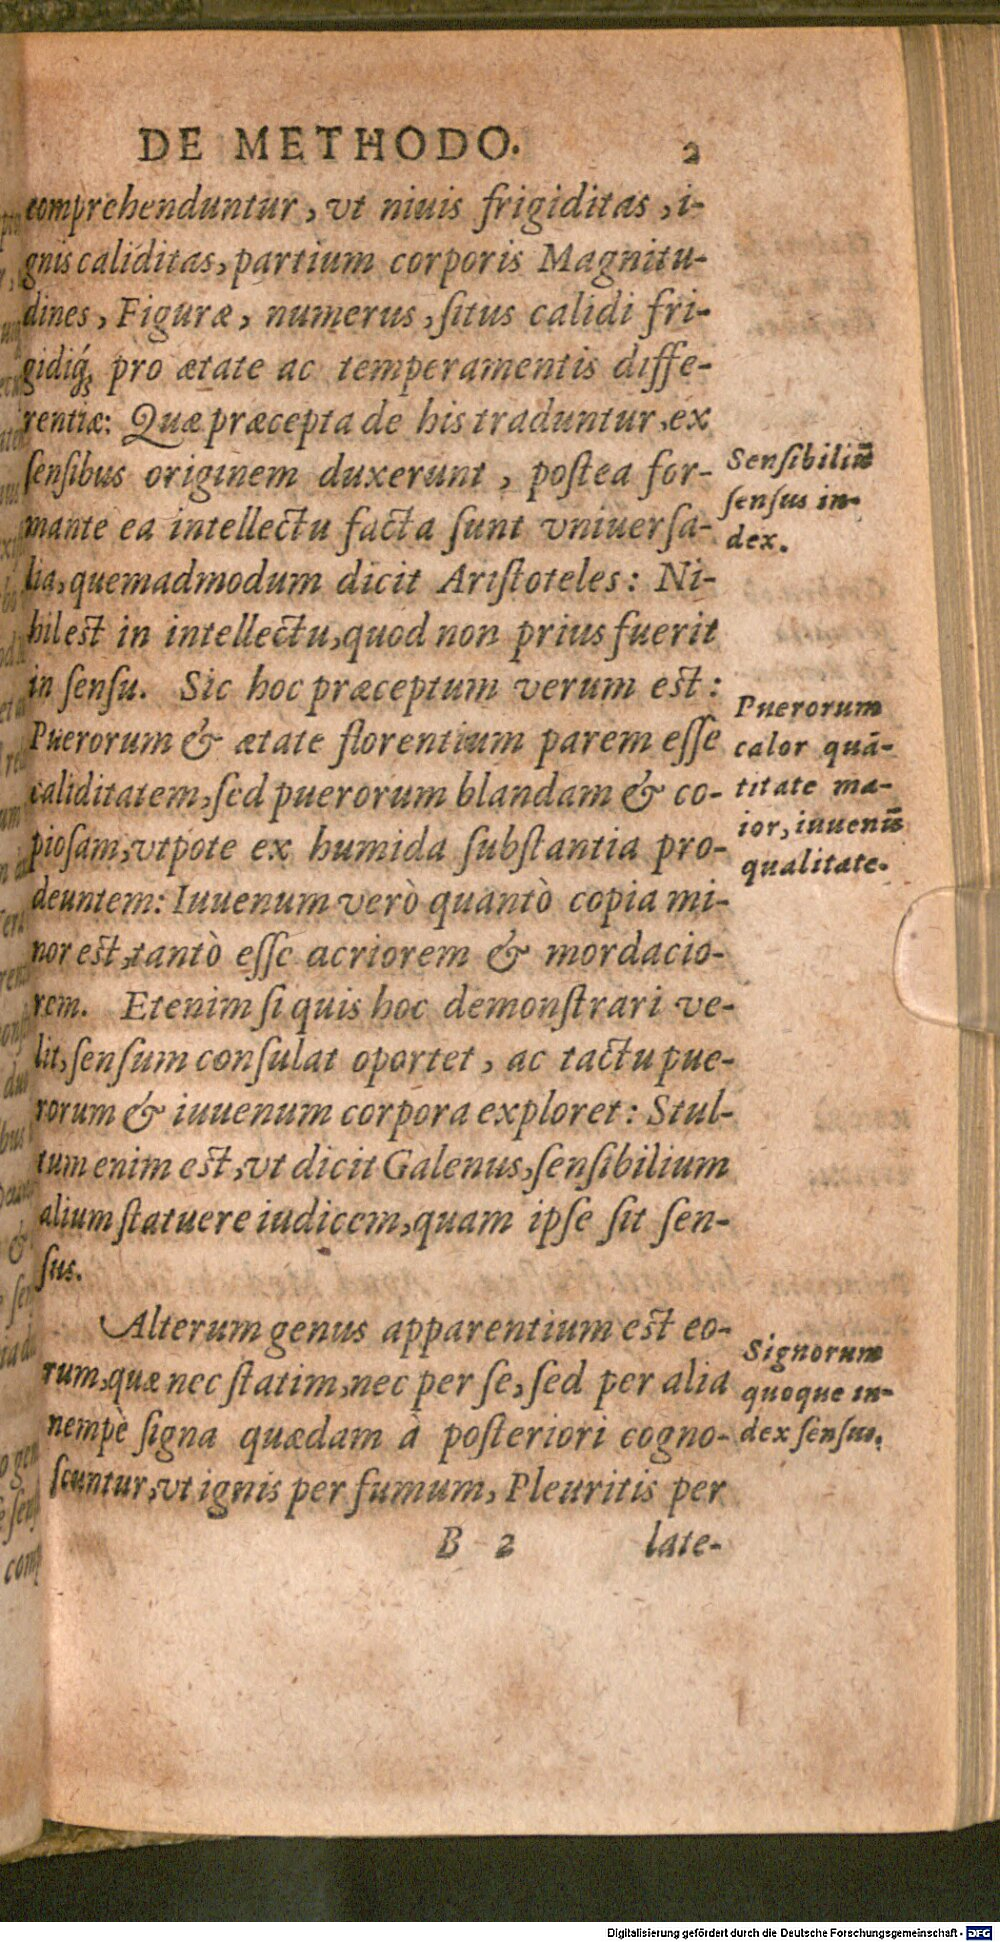 DE METHODO. 2
comprehenduntur, vt niuis frigiditas, i-
gnis caliditas, partium corporis Magnitu-
dines, Figuræ, numerus, ſitus calidi fri-
gidiq́; pro ætate ac temperamentis diffe-
rentiæ: Quæ præcepta de his traduntur, ex
ſenſibus originem duxerunt, poſtea for-
mante ea intellectu facta ſunt vniuerſa-
lia, quemadmodum dicit Ariſtoteles: Ni-
hil eſt in intellectu, quod non prius fuerit
in ſenſu. Sic hoc præceptum verum eſt:
Puerorum & ætate florentium parem eſſe
caliditatem, ſed puerorum blandam & co-
pioſam, vtpote ex humida ſubſtantia pro-
deuntem: Iuuenum verò quantò copia mi-
nor eſt, tantò eſſe acriorem & mordacio-
rem. Etenim ſi quis hoc demonſtrari ve-
lit, ſenſum conſulat oportet, ac tactu pue-
rorum & iuuenum corpora exploret: Stul-
tum enim eſt, vt dicit Galenus, ſenſibilium
alium ſtatuere iudicem, quam ipſe ſit ſen-
ſus.
Alterum genus apparentium eſt eo-
rum, quæ nec ſtatim, nec per ſe, ſed per alia
nempè ſigna quædam à poſteriori cogno-
ſcuntur, vt ignis per fumum, Pleuritis per
B 2 late-
Senſibiliū
ſenſus in-
dex.
Puerorum
calor quā-
titate ma-
ior, iuuenū
qualitate.
Signorum
quoque in-
dex ſenſus.
Digitalisierung gefördert durch die Deutsche Forschungsgemeinschaft - DFG